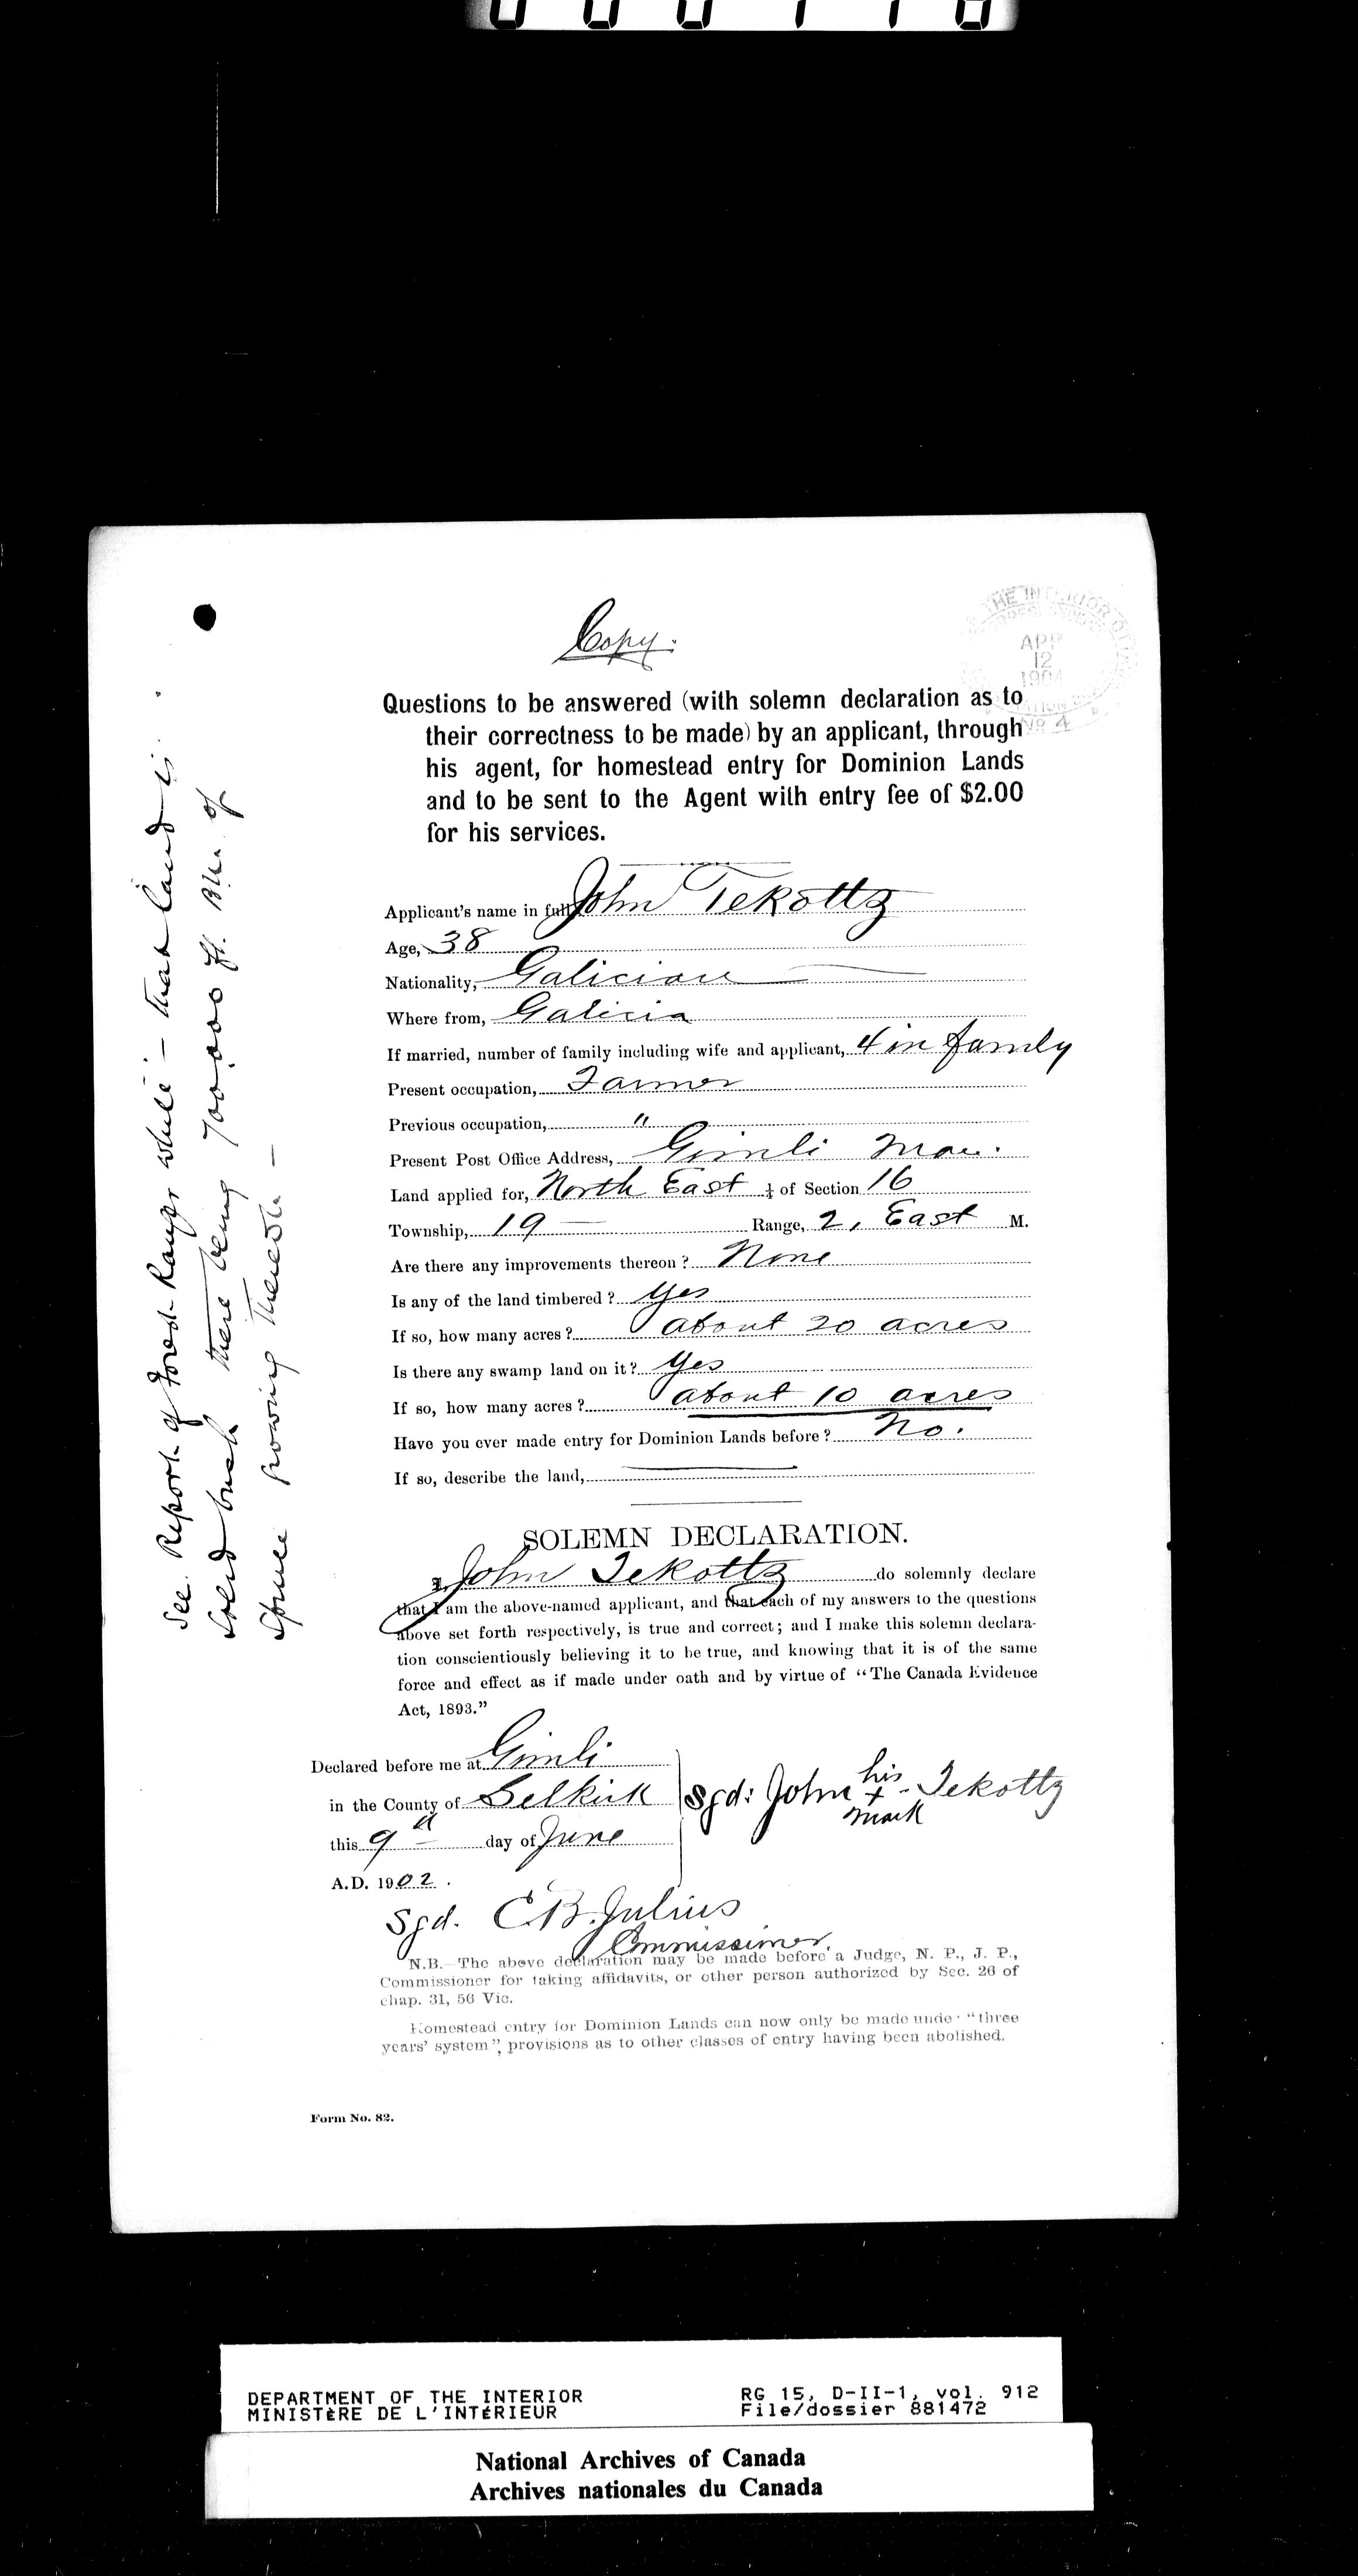 Copy.
THE INTERIOR
APR
12
1904
No 4
Questions to be answered (with solemn declaration as to
their correctness to be made) by an applicant, through
his agent, for homestead entry for Dominion Lands
and to be sent to the Agent with entry fee of $2.00
for his services.
Applicant's name in full, John Tekottz
Age, 38
Nationality, Galician
Where from, Galicia
If married, number of family including wife and applicant, 4 in family
Present occupation, Farmer
Previous occupation, "
Present Post Office Address, Gimli Man.
Land applied for, North East ¼ of Section 16
Township, 19 — Range, 2, East M.
Are there any improvements thereon? None
Is any of the land timbered? Yes
If so, how many acres? about 20 acres
Is there any swamp land on it? Yes
If so, how many acres? about 10 acres
Have you ever made entry for Dominion Lands before? No.
If so, describe the land, ———
See Report of Forest Ranger which — that land is
solid bush there being 700,000 ft. B.M. of
Spruce growing thereon —
SOLEMN DECLARATION.
I, John Tekottz do solemnly declare
that I am the above-named applicant, and that each of my answers to the questions
above set forth respectively, is true and correct; and I make this solemn declara-
tion conscientiously believing it to be true, and knowing that it is of the same
force and effect as if made under oath and by virtue of "The Canada Evidence
Act, 1893."
Declared before me at Gimli
in the County of Selkirk
this 9th day of June
A.D. 1902.
Sgd: John his + mark Tekottz
Sgd. C.B. Julius
Commissioner.
N.B.—The above declaration may be made before a Judge, N. P., J. P.,
Commissioner for taking affidavits, or other person authorized by Sec. 26 of
chap. 31, 56 Vic.
Homestead entry for Dominion Lands can now only be made under "three
years' system", provisions as to other classes of entry having been abolished.
Form No. 82.
DEPARTMENT OF THE INTERIOR
MINISTÈRE DE L'INTÉRIEUR
RG 15, D-II-1, vol. 912
File/dossier 881472
National Archives of Canada
Archives nationales du Canada